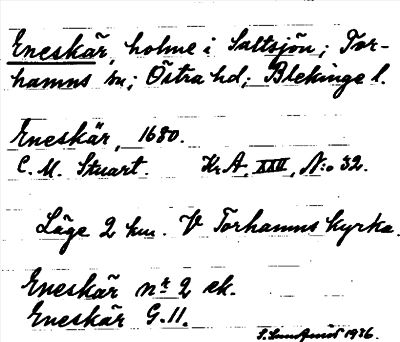 Eneskär, holme i Saltsjön; Tor-
hamns sn; Östra hd; Blekinge l.
Eneskär, 1680.
C. M. Stuart. Kr. A. XXII, N:o 32.
Läge 2 km. V Torhamns kyrka.
Eneskär nr 2 ek.
Eneskär G. 11.
1936.